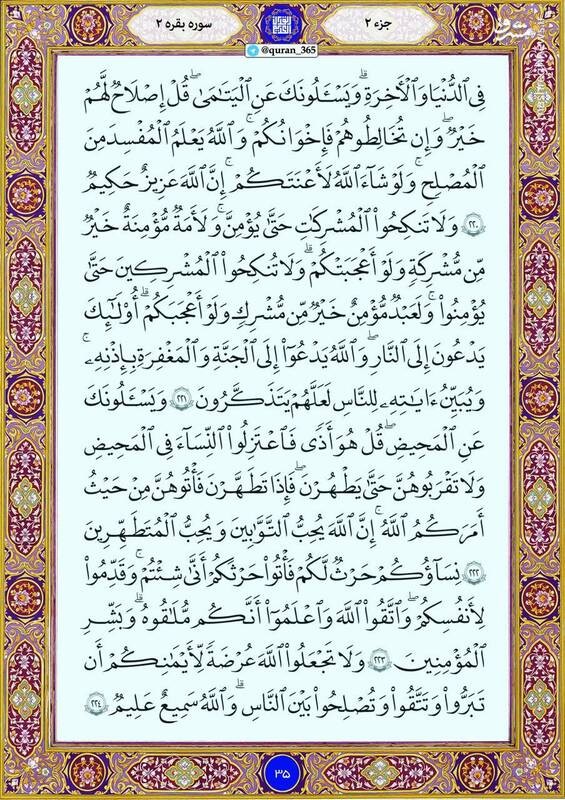 جزء ۲
سوره بقره ۲
@quran_365
مشرق
فِى ٱلدُّنْيَا وَٱلْـَٔاخِرَةِ ۗ وَيَسْـَٔلُونَكَ عَنِ ٱلْيَتَـٰمَىٰ ۖ قُلْ إِصْلَاحٌ لَّهُمْ
خَيْرٌ ۖ وَإِن تُخَالِطُوهُمْ فَإِخْوَٰنُكُمْ ۚ وَٱللَّهُ يَعْلَمُ ٱلْمُفْسِدَ مِنَ
ٱلْمُصْلِحِ ۚ وَلَوْ شَآءَ ٱللَّهُ لَأَعْنَتَكُمْ ۚ إِنَّ ٱللَّهَ عَزِيزٌ حَكِيمٌ
۲۲۰ وَلَا تَنكِحُوا۟ ٱلْمُشْرِكَـٰتِ حَتَّىٰ يُؤْمِنَّ ۚ وَلَأَمَةٌ مُّؤْمِنَةٌ خَيْرٌ
مِّن مُّشْرِكَةٍ وَلَوْ أَعْجَبَتْكُمْ ۗ وَلَا تُنكِحُوا۟ ٱلْمُشْرِكِينَ حَتَّىٰ
يُؤْمِنُوا۟ ۚ وَلَعَبْدٌ مُّؤْمِنٌ خَيْرٌ مِّن مُّشْرِكٍ وَلَوْ أَعْجَبَكُمْ ۗ أُو۟لَـٰٓئِكَ
يَدْعُونَ إِلَى ٱلنَّارِ ۖ وَٱللَّهُ يَدْعُوٓا۟ إِلَى ٱلْجَنَّةِ وَٱلْمَغْفِرَةِ بِإِذْنِهِۦ ۖ
وَيُبَيِّنُ ءَايَـٰتِهِۦ لِلنَّاسِ لَعَلَّهُمْ يَتَذَكَّرُونَ ۲۲۱ وَيَسْـَٔلُونَكَ
عَنِ ٱلْمَحِيضِ ۖ قُلْ هُوَ أَذًى فَٱعْتَزِلُوا۟ ٱلنِّسَآءَ فِى ٱلْمَحِيضِ ۖ
وَلَا تَقْرَبُوهُنَّ حَتَّىٰ يَطْهُرْنَ ۖ فَإِذَا تَطَهَّرْنَ فَأْتُوهُنَّ مِنْ حَيْثُ
أَمَرَكُمُ ٱللَّهُ ۚ إِنَّ ٱللَّهَ يُحِبُّ ٱلتَّوَّٰبِينَ وَيُحِبُّ ٱلْمُتَطَهِّرِينَ
۲۲۲ نِسَآؤُكُمْ حَرْثٌ لَّكُمْ فَأْتُوا۟ حَرْثَكُمْ أَنَّىٰ شِئْتُمْ ۖ وَقَدِّمُوا۟
لِأَنفُسِكُمْ ۚ وَٱتَّقُوا۟ ٱللَّهَ وَٱعْلَمُوٓا۟ أَنَّكُم مُّلَـٰقُوهُ ۗ وَبَشِّرِ
ٱلْمُؤْمِنِينَ ۲۲۳ وَلَا تَجْعَلُوا۟ ٱللَّهَ عُرْضَةً لِّأَيْمَـٰنِكُمْ أَن
تَبَرُّوا۟ وَتَتَّقُوا۟ وَتُصْلِحُوا۟ بَيْنَ ٱلنَّاسِ ۗ وَٱللَّهُ سَمِيعٌ عَلِيمٌ ۲۲۴
۳۵